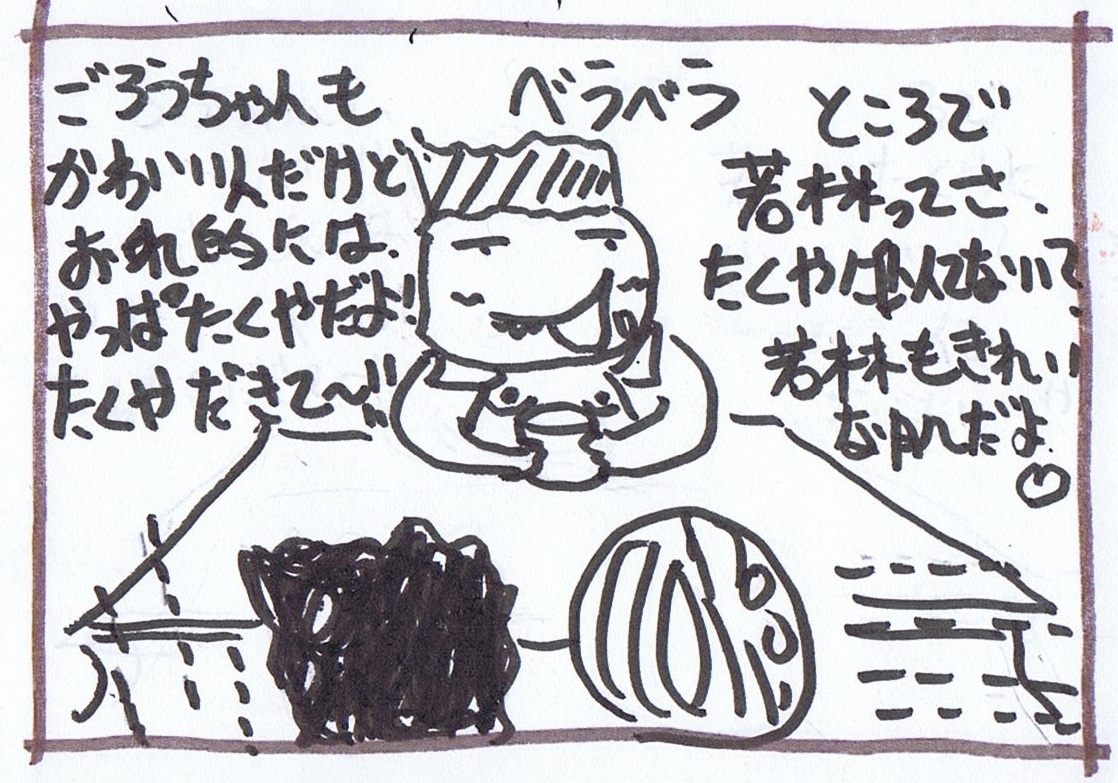 ところで
若林ってさ、
たくや似んてないて
若林もきれい
な肌だよ♡
ベラベラ
ごろうちゃんも
かわいい人だけど
おれ的には、
やっぱたくやだよ!
たくやだきて〜!!